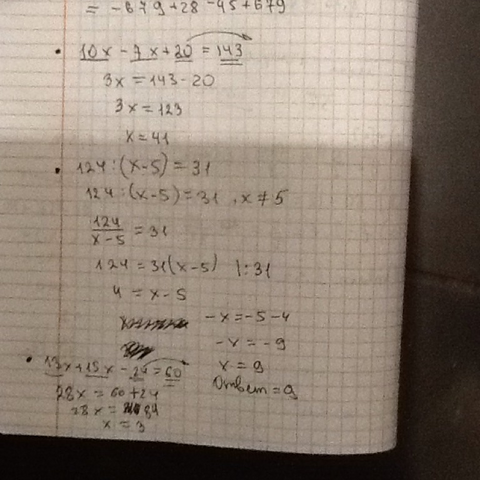 = -679+28-45+679
10x-7x+20=143
3x=143-20
3x=123
x=41
124:(x-5)=31
124:(x-5)=31, x≠5
124/x-5=31
124=31(x-5) |:31
4=x-5
-x=-5-4
-x=-9
x=9
Ответ=9
13x+15x-24=60
28x=60+24
28x=84
x=3